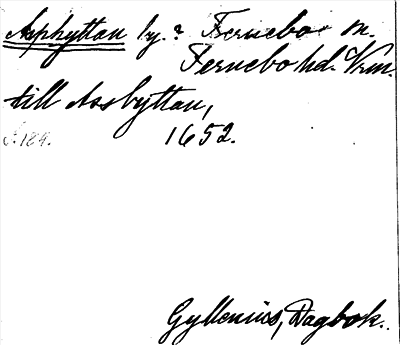 Asphyttan by. i Fernebo sn.
Fernebo hd. Vrm.
till Assbyttan,
s. 189. 1652.
Gyllenius, Dagbok.